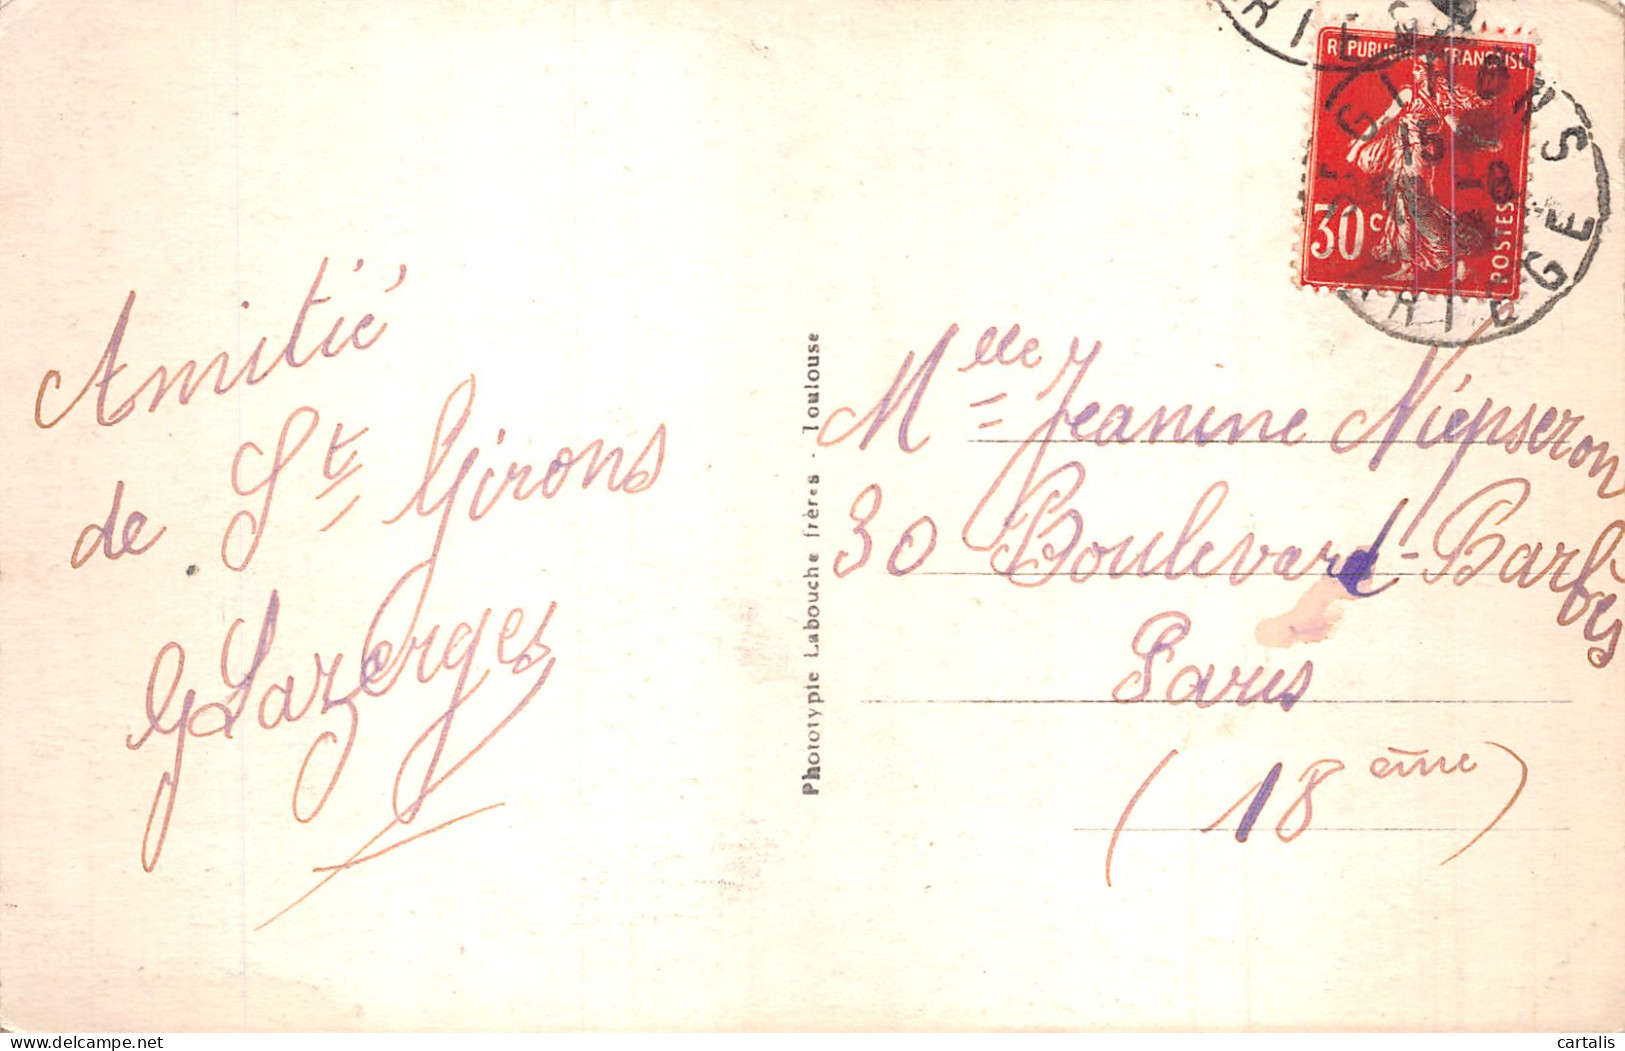 Amitié
de St Girons
G Lazerges
Phototypie Labouche frères - Toulouse
RÉPUBLIQUE FRANÇAISE
30 c
POSTES
ST GIRONS
15
-8
ARIEGE
Mlle Jeanine Niepseron
30 Boulevard-Barbès
Paris
(18 ème)
cartalis
delcampe.net